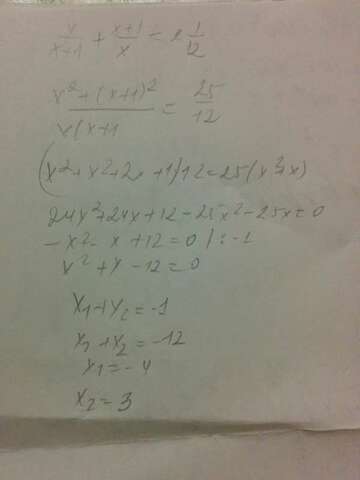 x/(x+1) + (x+1)/x = 2 1/12
(x²+(x+1)²)/(x(x+1) = 25/12
(x²+x²+2x+1)12=25(x²+x)
24x²+24x+12-25x²-25x=0
-x²-x+12=0 /:-1
x²+x-12=0
x₁+x₂=-1
x₁+x₂=-12
x₁=-4
x₂=3